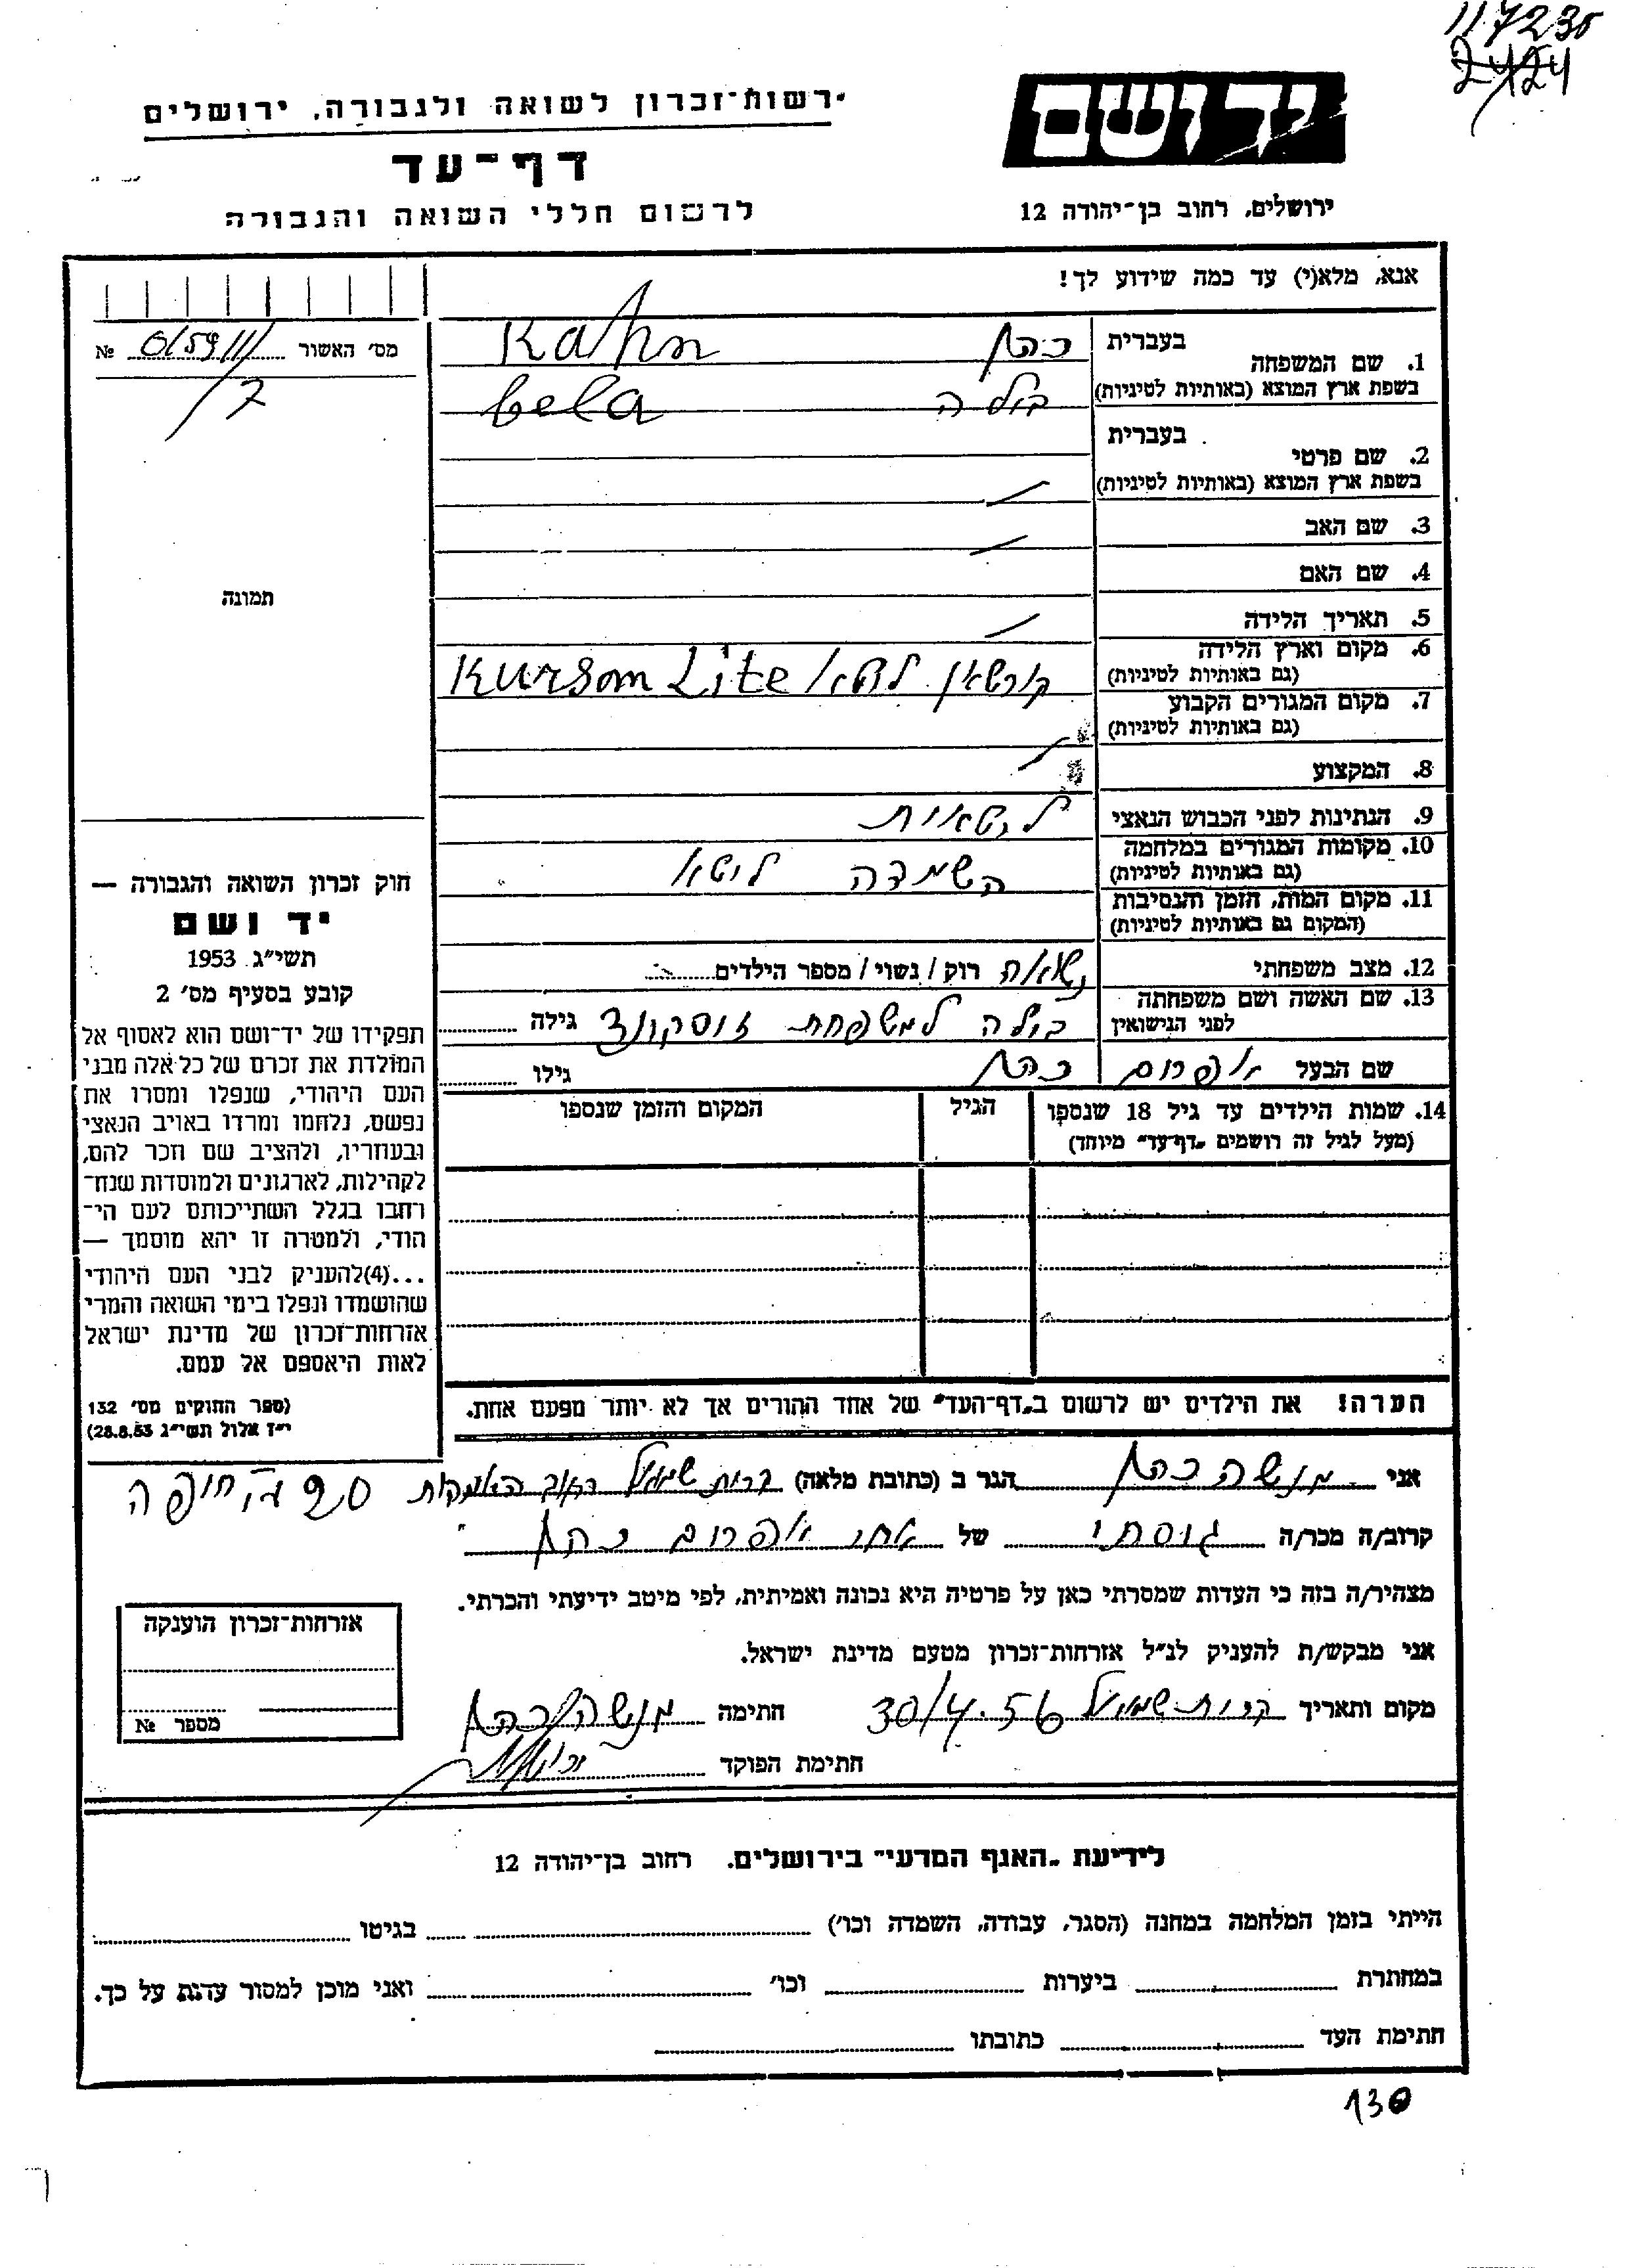 117230
2424
יד ושם
רשות-זכרון לשואה ולגבורה, ירושלים
דף-עד
לרשום חללי השואה והגבורה
ירושלים, רחוב בן-יהודה 12
אנא, מלא(י) עד כמה שידוע לך!
מס׳ האשור № 0/59/11
/7
תמונה
1. שם המשפחה בעברית כהן Kahn
בשפת ארץ המוצא (באותיות לטיניות) בילה bela
2. שם פרטי בעברית
בשפת ארץ המוצא (באותיות לטיניות)
3. שם האב
4. שם האם
5. תאריך הלידה
6. מקום וארץ הלידה
(גם באותיות לטיניות) קורשאן ליטא Kurson Lite
7. מקום המגורים הקבוע
(גם באותיות לטיניות)
8. המקצוע
9. הנתינות לפני הכבוש הנאצי ליטאית
10. מקומות המגורים במלחמה
(גם באותיות לטיניות) השמדה ליטא
11. מקום המות, הזמן והנסיבות
(המקום גם באותיות לטיניות)
12. מצב משפחתי נשואה רוק / נשוי / מספר הילדים
13. שם האשה ושם משפחתה
לפני הנישואין בילה למשפחת זוסקונד גילה
שם הבעל אפרום כהן גילו
14. שמות הילדים עד גיל 18 שנספו הגיל המקום והזמן שנספו
(מעל לגיל זה רושמים „דף-עד״ מיוחד)
הערה! את הילדים יש לרשום ב„דף-העד״ של אחד ההורים אך לא יותר מפעם אחת.
חוק זכרון השואה והגבורה —
יד ושם
תשי״ג 1953
קובע בסעיף מס׳ 2
תפקידו של יד-ושם הוא לאסוף אל
המולדת את זכרם של כל אלה מבני
העם היהודי, שנפלו ומסרו את
נפשם, נלחמו ומרדו באויב הנאצי
ובעוזריו, ולהציב שם וזכר להם,
לקהילות, לארגונים ולמוסדות שנח-
רבו בגלל השתייכותם לעם הי-
הודי, ולמטרה זו יהא מוסמך —
...(4)להעניק לבני העם היהודי
שהושמדו ונפלו בימי השואה והמרי
אזרחות-זכרון של מדינת ישראל
לאות היאספם אל עמם.
(ספר החוקים מס׳ 132
י״ז אלול תשי״ג 28.8.53)
אני מנשה כהן הגר ב (כתובת מלאה) קרית שמואל רחוב חיפה
קרוב/ה מכר/ה גיסתי של אחי אפרום כהן
מצהיר/ה בזה כי העדות שמסרתי כאן על פרטיה היא נכונה ואמיתית, לפי מיטב ידיעתי והכרתי.
אני מבקש/ת להעניק לנ״ל אזרחות-זכרון מטעם מדינת ישראל.
מקום ותאריך קרית שמואל 30/4.56 חתימה מנשה כהן
חתימת הפוקד
אזרחות-זכרון הוענקה
מספר №
לידיעת „האגף המדעי״ בירושלים. רחוב בן-יהודה 12
הייתי בזמן המלחמה במחנה (הסגר, עבודה, השמדה וכו׳) בגיטו
במחתרת ביערות וכו׳ ואני מוכן למסור עדות על כך.
חתימת העד כתובתו
130